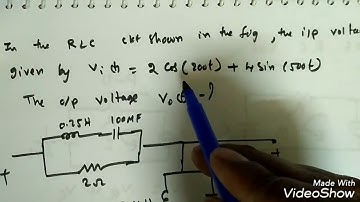 In the RLC ckt shown in the fig, the i/p volta
given by Vi(t) = 2 cos(200t) + 4 sin(500t)
The o/p voltage Vo(t) - ?
0.25H 100MF
+ +
2Ω
Made With
VideoShow